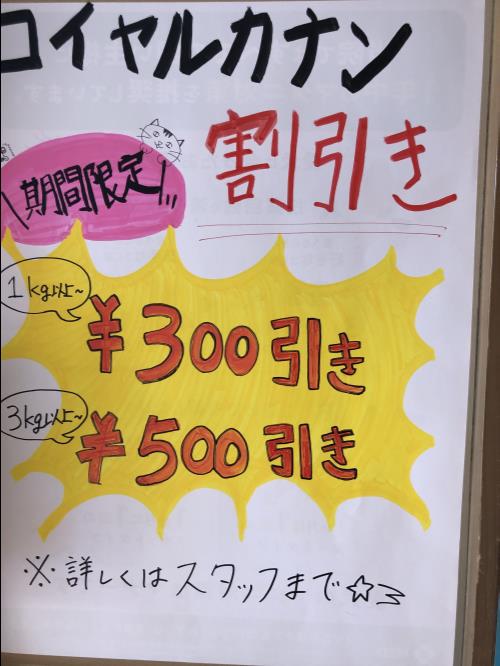 ロイヤルカナン
割引き
\期間限定/
1kg以上~
¥300引き
3kg以上~
¥500引き
※詳しくはスタッフまで☆